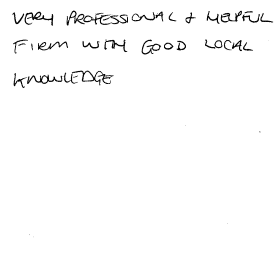 VERY PROFESSIONAL & HELPFUL
FIRM WITH GOOD LOCAL
KNOWLEDGE